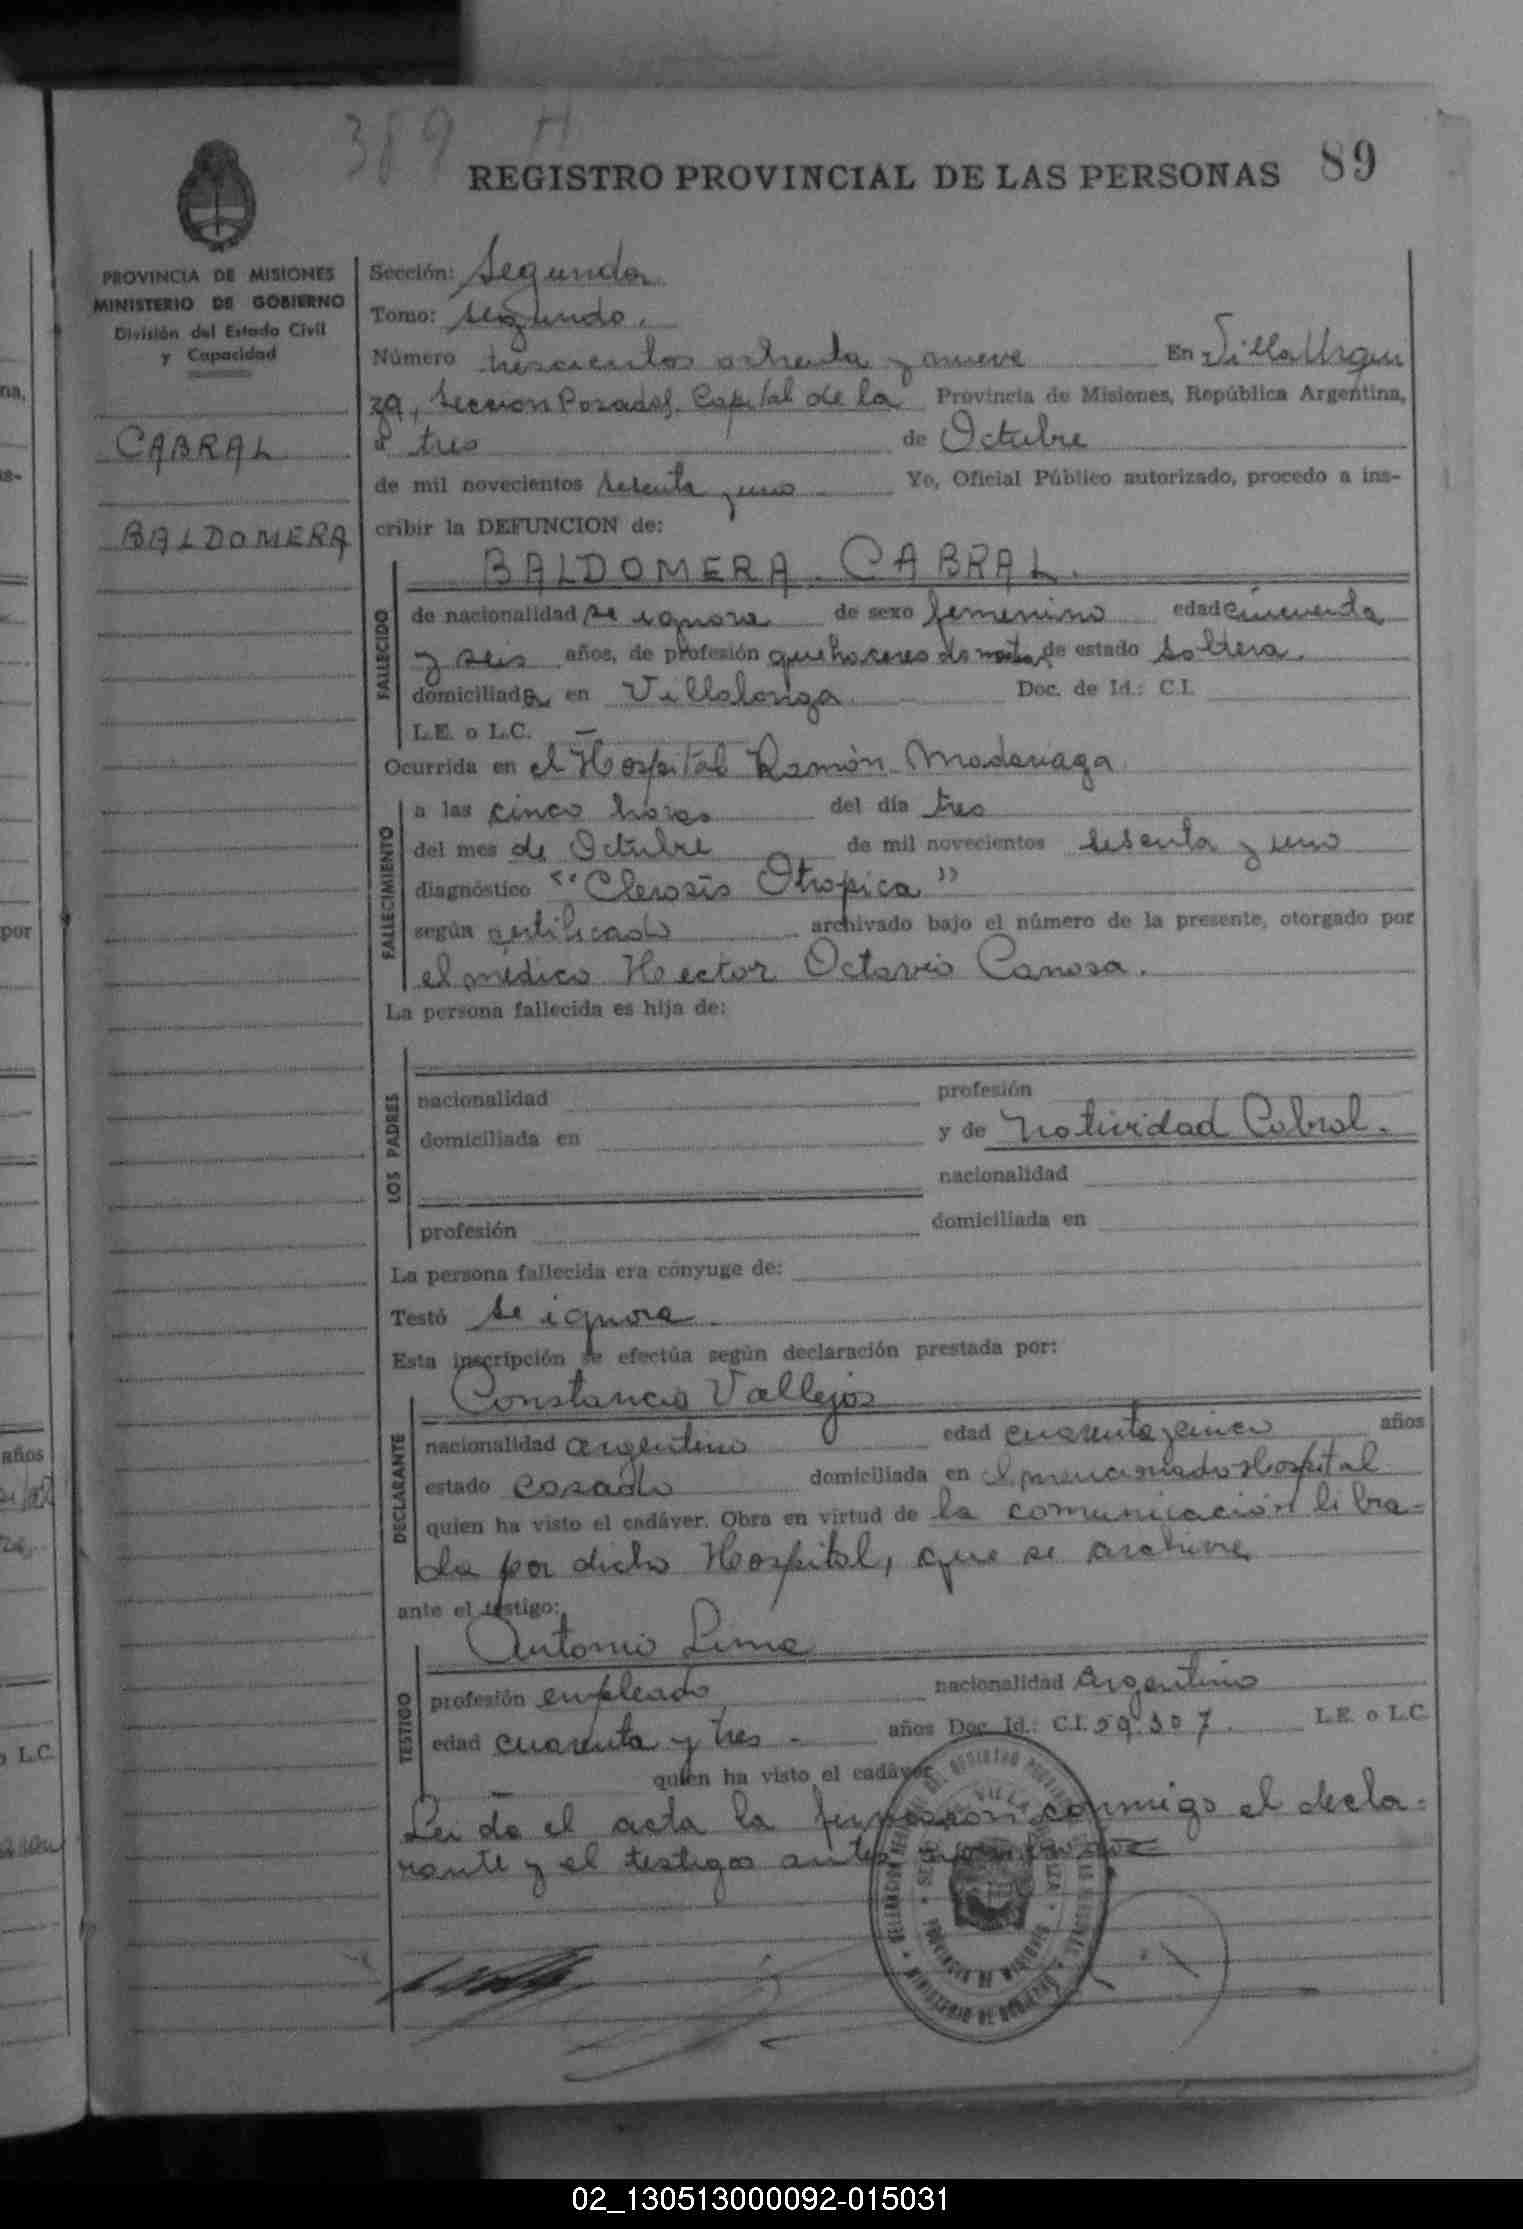 389 H
REGISTRO PROVINCIAL DE LAS PERSONAS 89
PROVINCIA DE MISIONES
MINISTERIO DE GOBIERNO
División del Estado Civil
y Capacidad
CABRAL
BALDOMERA
Sección: Segunda
Tomo: segundo.
Número trescientos ochenta y nueve En Villa Urqui
za, Seccion Posadas. Capital de la Provincia de Misiones, República Argentina,
a tres de Octubre
de mil novecientos sesenta y uno Yo, Oficial Público autorizado, procedo a ins-
cribir la DEFUNCION de:
BALDOMERA CABRAL.
FALLECIDO
de nacionalidad se ignora de sexo femenino edad cincuenta
y seis años, de profesión quehaceres de estado soltera.
domiciliada en Villalonga Doc. de Id.: C.I.
L.E. o L.C. —
Ocurrida en el Hospital Ramón Madariaga
FALLECIMIENTO
a las cinco horas del día tres
del mes de Octubre de mil novecientos sesenta y uno
diagnóstico "Clerosis Otropica"
según certificado archivado bajo el número de la presente, otorgado por
el médico Hector Octavio Canosa.
La persona fallecida es hija de:
LOS PADRES
nacionalidad profesión
domiciliada en y de Natividad Cabral.
nacionalidad
profesión domiciliada en
La persona fallecida era cónyuge de:
Testó se ignora.
Esta inscripción se efectúa según declaración prestada por:
Constancio Vallejos
DECLARANTE
nacionalidad argentino edad cuarenta y cinco años
estado casado domiciliada en el mencionado Hospital
quien ha visto el cadáver. Obra en virtud de la comunicación libra=
da por dicho Hospital, que se archiva
ante el testigo:
Antonio Lima
TESTIGO
profesión empleado nacionalidad Argentino
edad cuarenta y tres - años Doc. Id.: C.I. 59.307. L.E. o L.C.
— quien ha visto el cadáver
Leida el acta la conmigo el decla=
rante y el testigo
PROVINCIA DE MISIONES
MINISTERIO DE GOBIERNO
años
por
L.C.
02_130513000092-015031